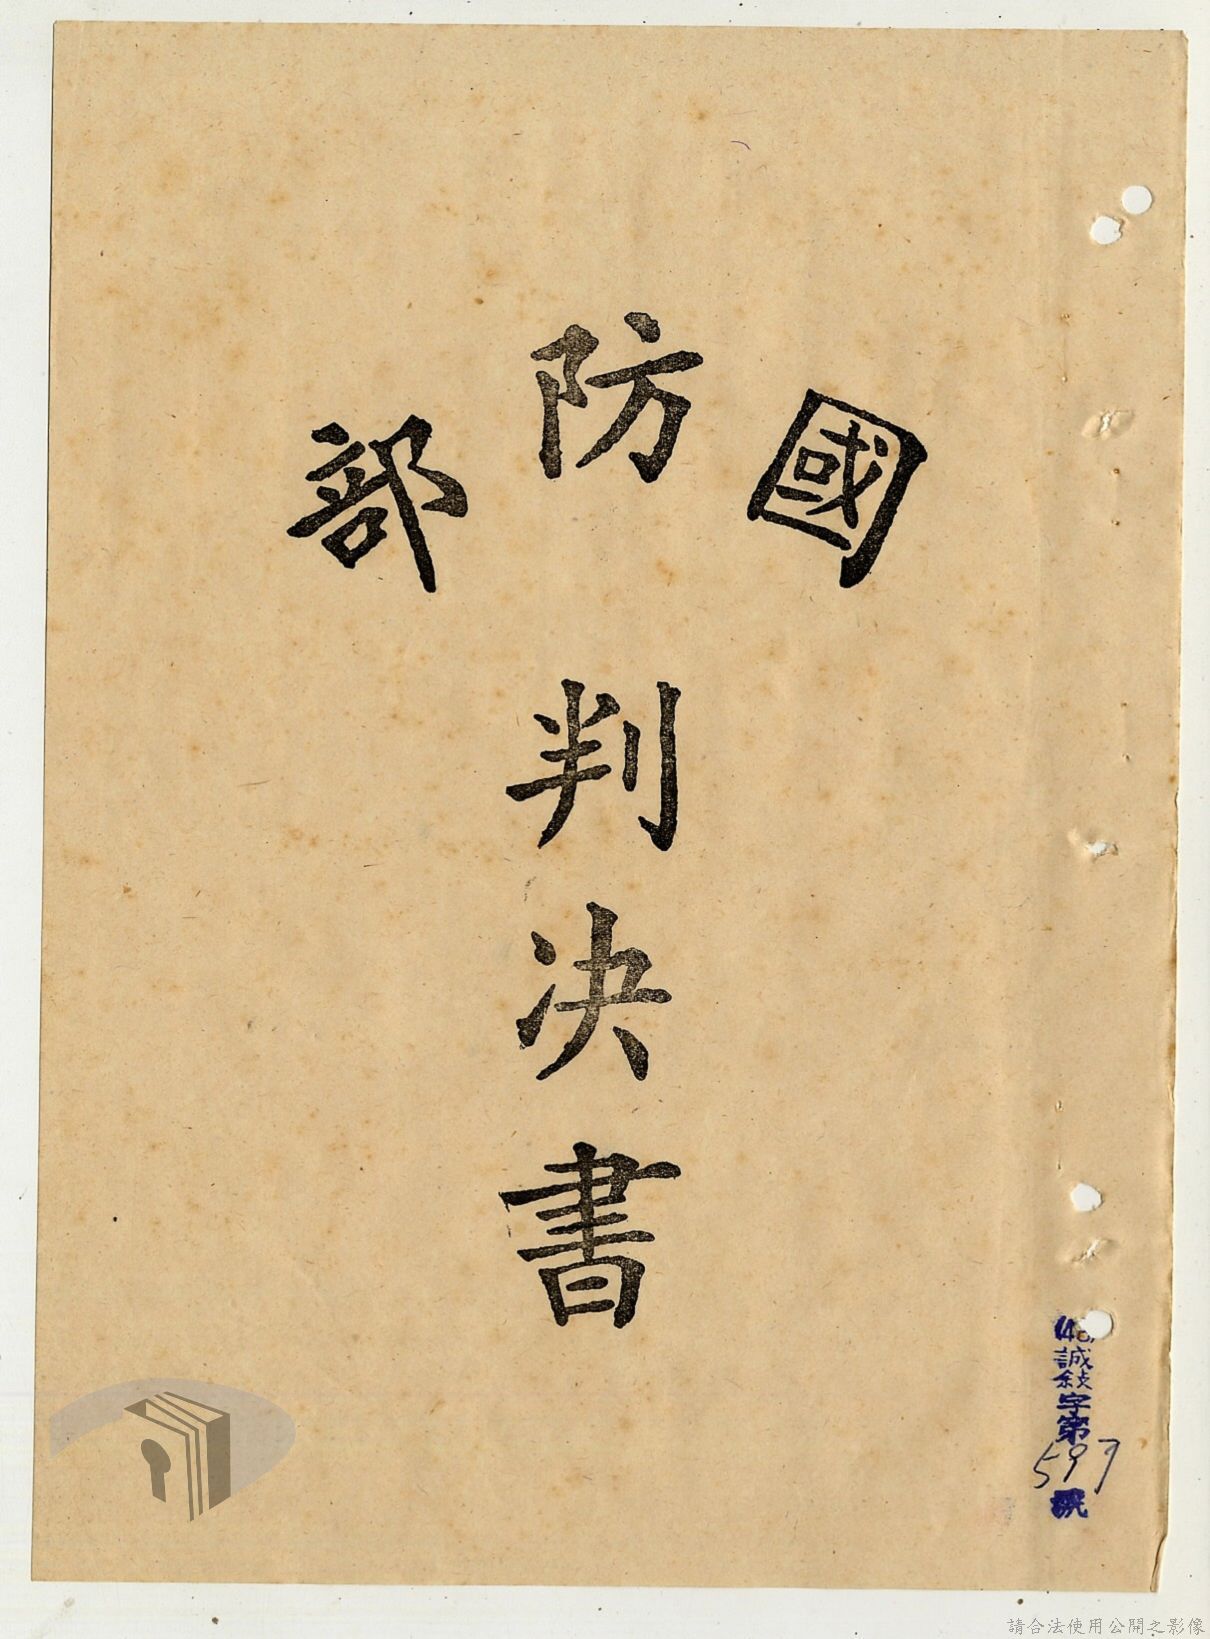 國防部
判決書
(48)誠敍字第
597
號
請合法使用公開之影像